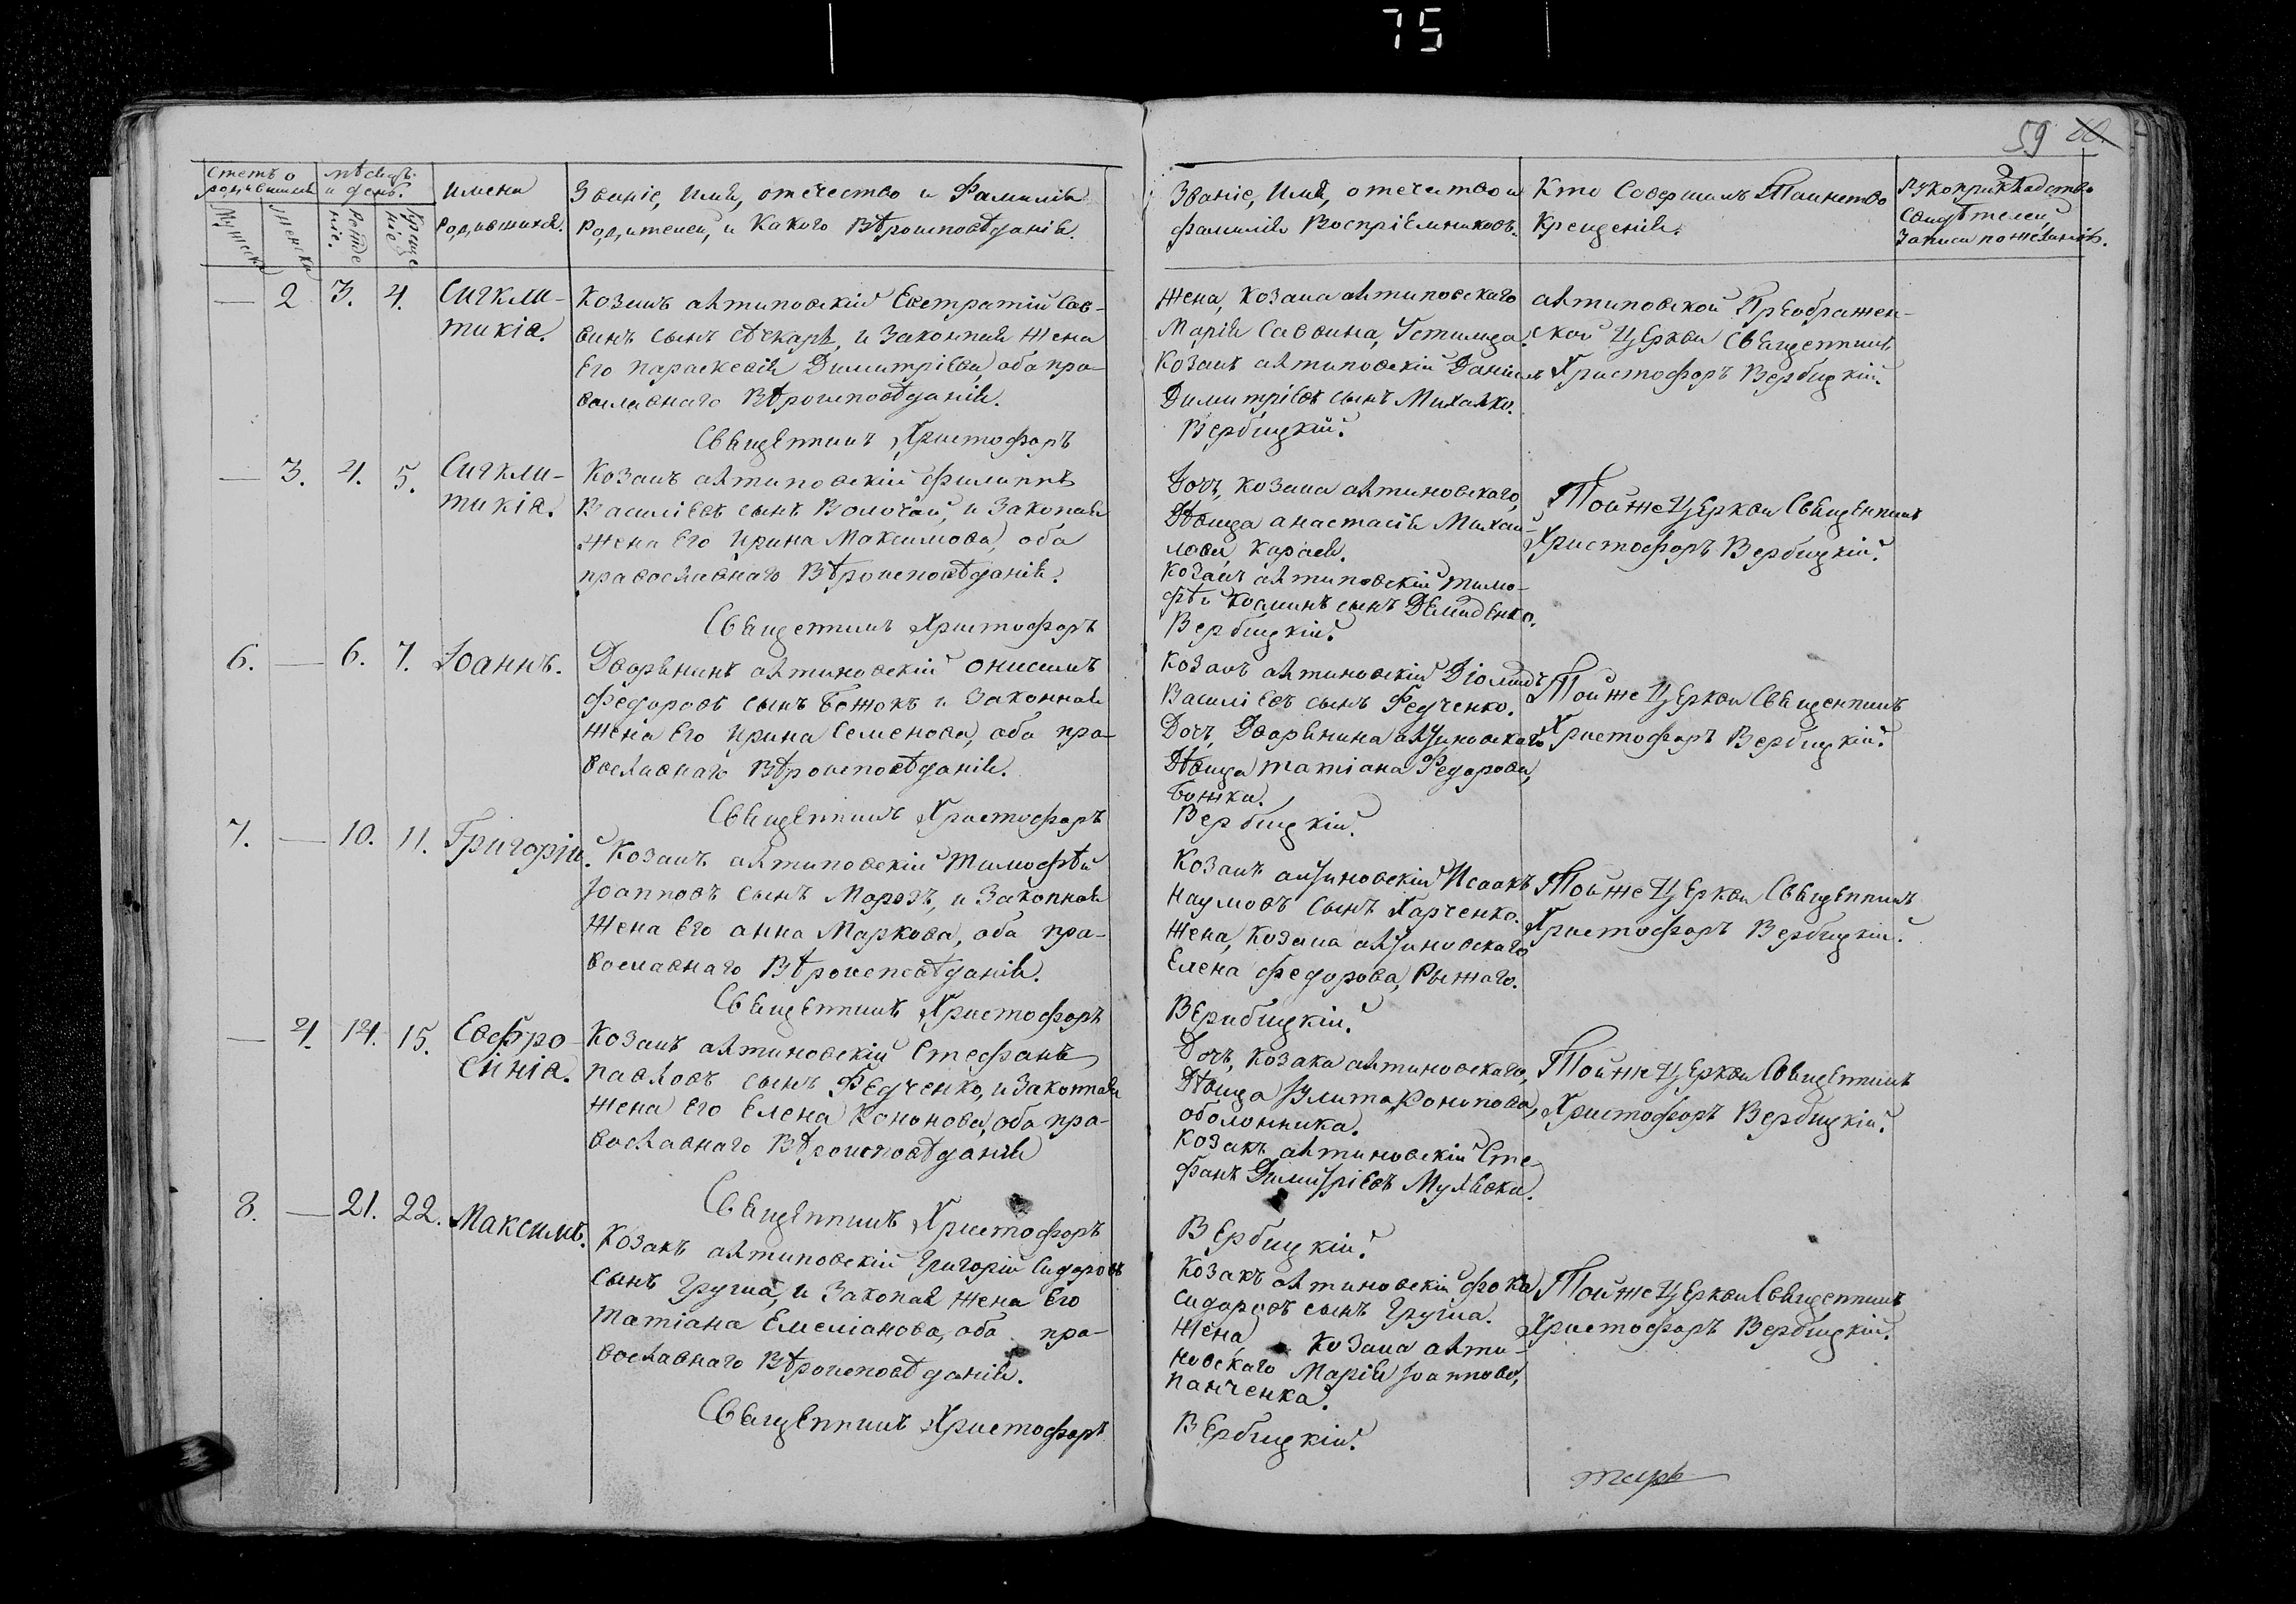 75
59 60.
Счетъ о родившихся
мѣсяцъ и день.
Имена родившихся.
Званіе, Имя, отечество и Фамилія
Родителей, и Какого Вѣроисповѣданія.
Мужеска
Женска
Рожденіе.
Крещеніе
Званіе, Имя, отечество и
фамилія Воспріемниковъ.
Кто Совершалъ Таинство
Крещенія.
Рукоприкладство
Свидѣтелей
Записи по желанію.
— 2 3. 4.
Сигкли-
тикіа.
Козакъ алтиновскій Евстратій Сав-
винъ сынъ Сѣчкарь, и Законная Жена
Его Параскевія Димитріева, оба пра-
вославнаго Вѣроисповѣданія.
Священникъ Христофоръ
Жена, Козака алтиновскаго
Марія Саввина, Устимца.
Козакъ алтиновскій Даніилъ
Димитріевъ сынъ Михалко.
Вербицкій.
алтиновской Преображен-
ской Церкви Священникъ
Христофоръ Вербицкій.
— 3. 4. 5.
Сигкли-
тикіа.
Козакъ алтиновскій Филиппъ
Василіевъ сынъ Волочай, и Законая
жена Его Ирина Максимова, оба
православнаго Вѣроисповѣданія.
Священникъ Христофоръ
Дочь, Козака алтиновскаго,
Дѣвица анастасія Михаи-
лова Карася.
Козакъ алтиновскій Тимо-
фѣй Косминъ сынъ Демиденко.
Вербицкій.
Той же Церкви Священникъ
Христофоръ Вербицкій.
6. — 6. 7. Іоаннъ.
Дворянинъ алтиновскій Онисимъ
Федоровъ сынъ Божокъ и Законная
жена Его Ирина Семенова, оба пра-
вославнаго Вѣроисповѣданія.
Священникъ Христофоръ
Козакъ алтиновскій Діомидъ
Василіевъ сынъ Федченко.
Дочь, Дворянина алтиновскаго
Дѣвица Татіана Федорова,
Божка.
Вербицкій.
Той же Церкви Священникъ
Христофоръ Вербицкій.
7. — 10. 11. Григорій.
Козакъ алтиновскій Тимофѣй
Іоанновъ сынъ Морозъ, и Законная
Жена Его анна Маркова, оба пра-
вославнаго Вѣроисповѣданія.
Священникъ Христофоръ
Козакъ алтиновскій Исаакъ
Наумовъ сынъ Харченко.
Жена, Козака алтиновскаго
Елена Федорова, Рыжаго.
Верибицкій.
Той же Церкви Священникъ
Христофоръ Вербицкій.
— 4. 14. 15.
Евфро-
синіа.
Козакъ алтиновскій Стефанъ
Павловъ сынъ Федченко, и Законная
жена Его Елена Кононова, оба пра-
вославнаго Вѣроисповѣданія
Священникъ Христофоръ
Дочь, Козака алтиновскаго,
Дѣвица Улита Кононова,
оболонника.
Козакъ алтиновскій Сте-
фанъ Димитріевъ Мулявка.
Вербицкій.
Той же Церкви Священникъ
Христофоръ Вербицкій.
8. — 21. 22. Максимъ.
Козакъ алтиновскій Григорій Сидоровъ
сынъ Груша, и Законая жена Его
Татіана Емеліанова, оба пра-
вославнаго Вѣроисповѣданія.
Священникъ Христофоръ
Козакъ алтиновскій Фока
Сидоровъ сынъ Груша.
Жена Козака алти-
новскаго Марія Іоаннова,
Панченка.
Вербицкій.
Той же Церкви Священникъ
Христофоръ Вербицкій.